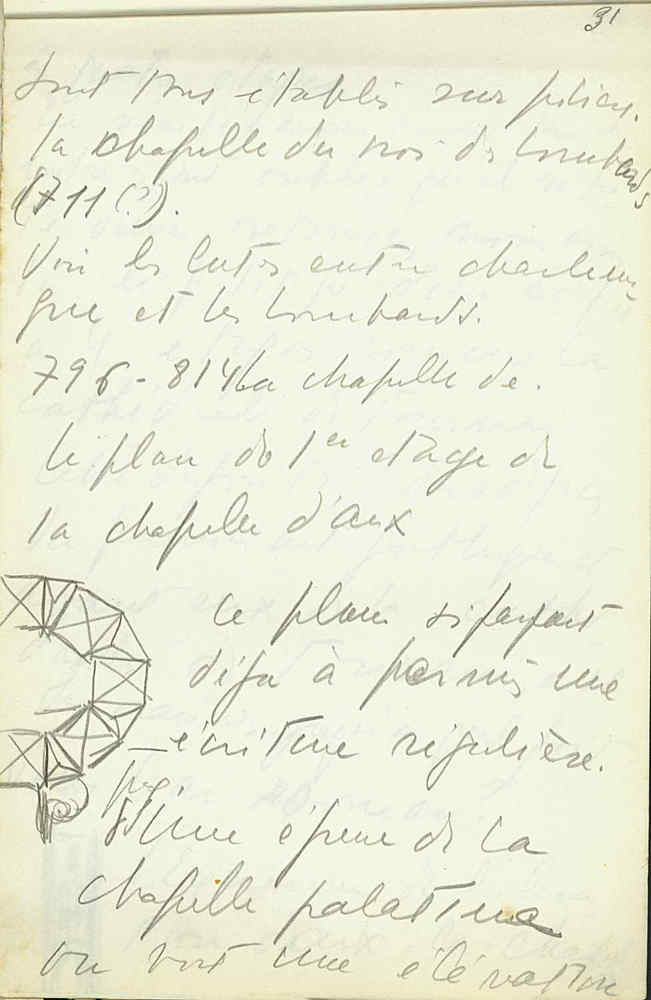 31
sont tous établis sur piliers.
la chapelle du roi des Lombards
(711 (?).
Voir les luttes entre Charlema
gne et les Lombards.
796 - 814 La chapelle de.
le plan du 1er etage de
la chapelle d'aix
Ce plan si parfait
déja à permis une
écriture régulière.
une épure de la
chapelle palatine
on voit une élévation